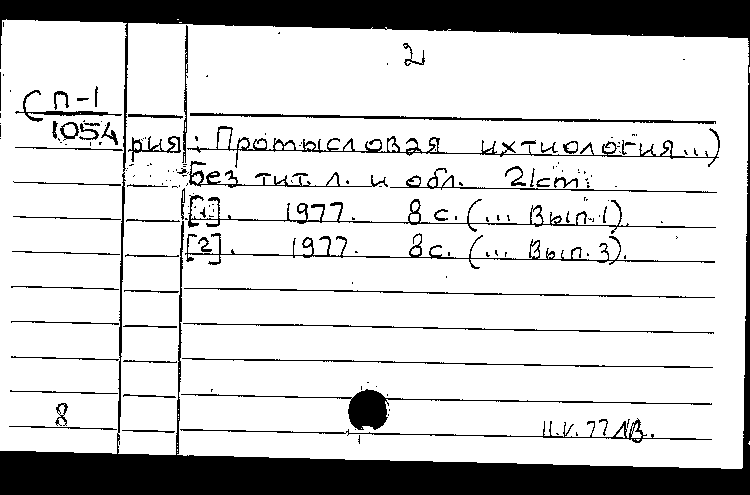 2
(П-1
1054
рия: Промысловая ихтиология...)
Без тит. л. и обл. 21cm.
[1]. 1977. 8 с. (... Вып.1).
[2]. 1977. 8с. (... Вып.3).
8
11.V.77